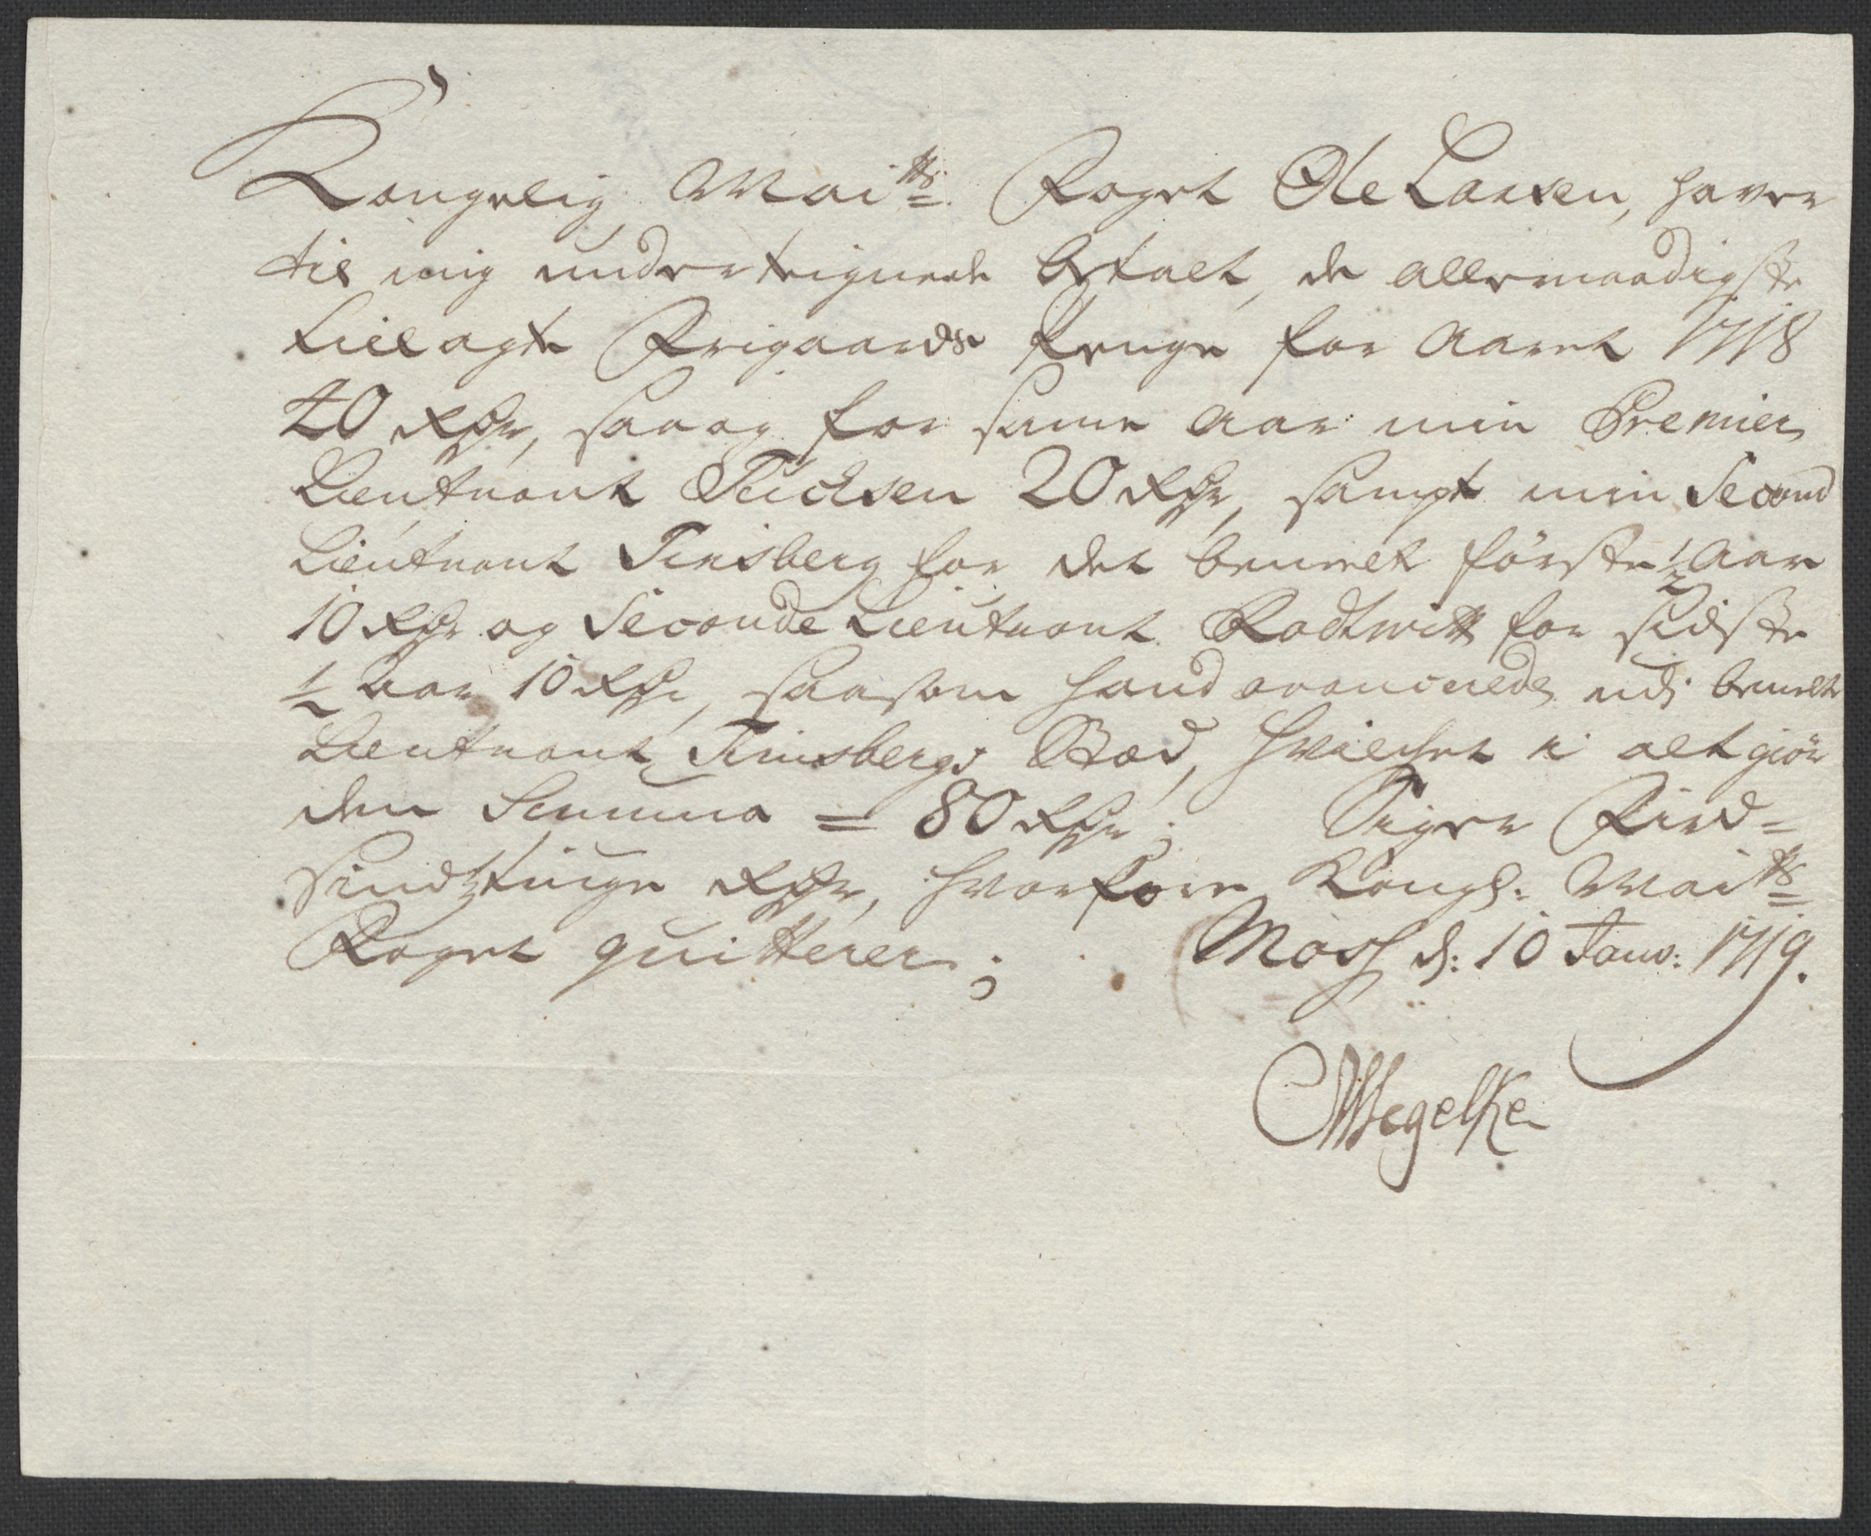 Kongelig Mai^tts Foget Ole Larsen, haver
til mig undertegnede betalt, de allernaadigste
tillagte Frigaards Penge for Aaret 1718
40 Rdr, saa og for samme Aar min Premier
Lieutnant Tuchsen 20 Rdr, sampt min Second
Lieutnant Tinsberg for det bemelt förste 1/2 Aar
10 Rdr og Seconde Lieutnant Rodtwitt for sidste
1/2 Aar 10 Rdr, saasom hand avancerede udi bemelte
Lieutnant Tinsbergs Stæd, hvilchet i alt giör
den Summa = 80 Rdr; Siger Fird-
sindztiuge Rdr, hvorfore Kongl: Mai^tts
Foget quitterer; Mosz d: 10 Janv: 1719.
Wegelke